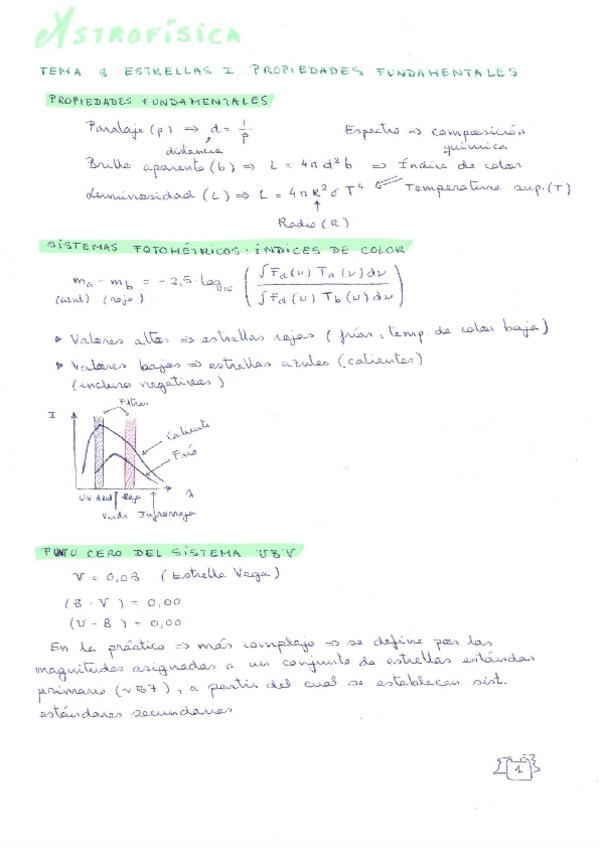 Astrofísica
TEMA 3 ESTRELLAS I: PROPIEDADES FUNDAMENTALES
PROPIEDADES FUNDAMENTALES
Paralaje (p) ⇒ d = 1/p Espectro ⇒ composición
distancia química
Brillo aparente (b) ⇒ L = 4π d² b ⇒ Índice de color
Luminosidad (L) ⇒ L = 4π R² σ T⁴ ⇐ Temperatura sup. (T)
↑
Radio (R)
SISTEMAS FOTOMÉTRICOS: ÍNDICES DE COLOR
m_a - m_b = -2,5 · log₁₀ ( ∫F_a(ν) T_a(ν) dν / ∫F_a(ν) T_b(ν) dν )
(azul) (rojo)
▸ Valores altos ⇒ estrellas rojas (frías, temp. de color baja)
▸ Valores bajos ⇒ estrellas azules (calientes)
(incluso negativos)
Filtros
I
Caliente
Frío
λ
UV Azul Rojo
Verde Infrarrojo
PUNTO CERO DEL SISTEMA UBV
V = 0,03 (Estrella Vega)
(B - V) = 0,00
(U - B) = 0,00
En la práctica ⇒ más complejo ⇒ se define por las
magnitudes asignadas a un conjunto de estrellas estándar
primario (~57), a partir del cual se establecen sist.
estándares secundarios
1